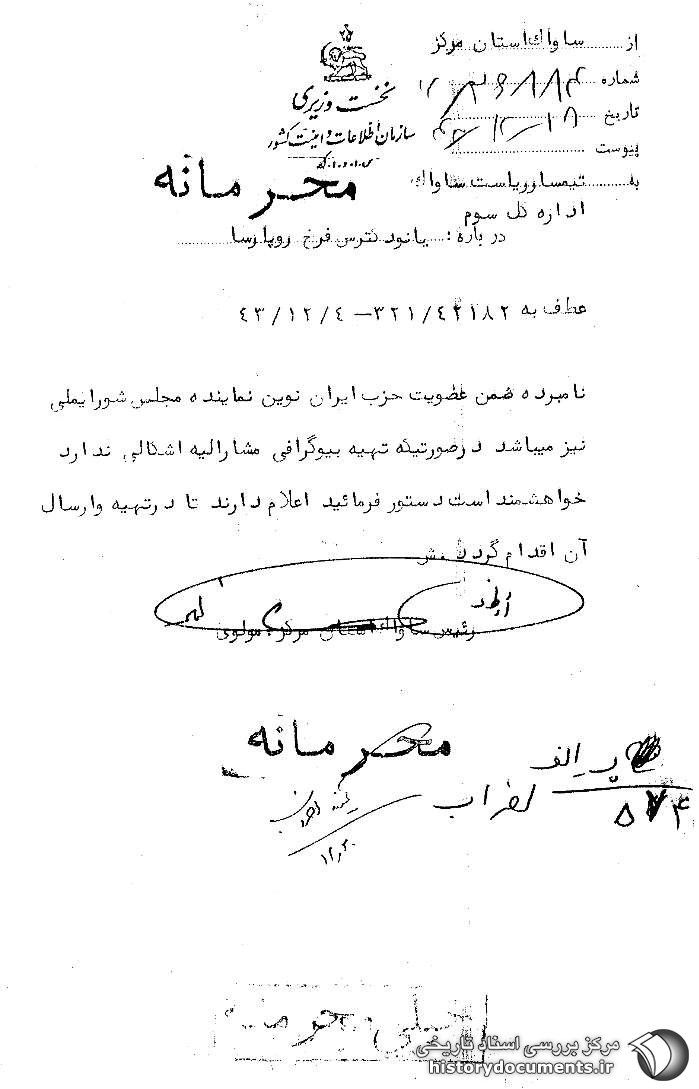 از ساواک استان مرکز
شماره
تاریخ
پیوست
نخست وزیری
سازمان اطلاعات و امنیت کشور
س.ا.و.ا.ک
محرمانه
به تیمسار ریاست ساواک
اداره کل سوم
درباره : بانو دکتر فرخ روپارسا
عطف به ۳۲۱/۴۲۱۸۲ – ۴۳/۱۲/۴
نامبرده ضمن عضویت حزب ایران نوین نماینده مجلس شورایملی
نیز میباشد درصورتیکه تهیه بیوگرافی مشارالیه اشکالی ندارد
خواهشمند است دستور فرمائید اعلام دارند تا درتهیه وارسال
آن اقدام گردد
رئیس ساواک استان مرکز . مولوی
محرمانه
الف
۸۷۴
۱۲/۲۰
خیلی محرمانه
مرکز بررسی اسناد تاریخی
historydocuments.ir